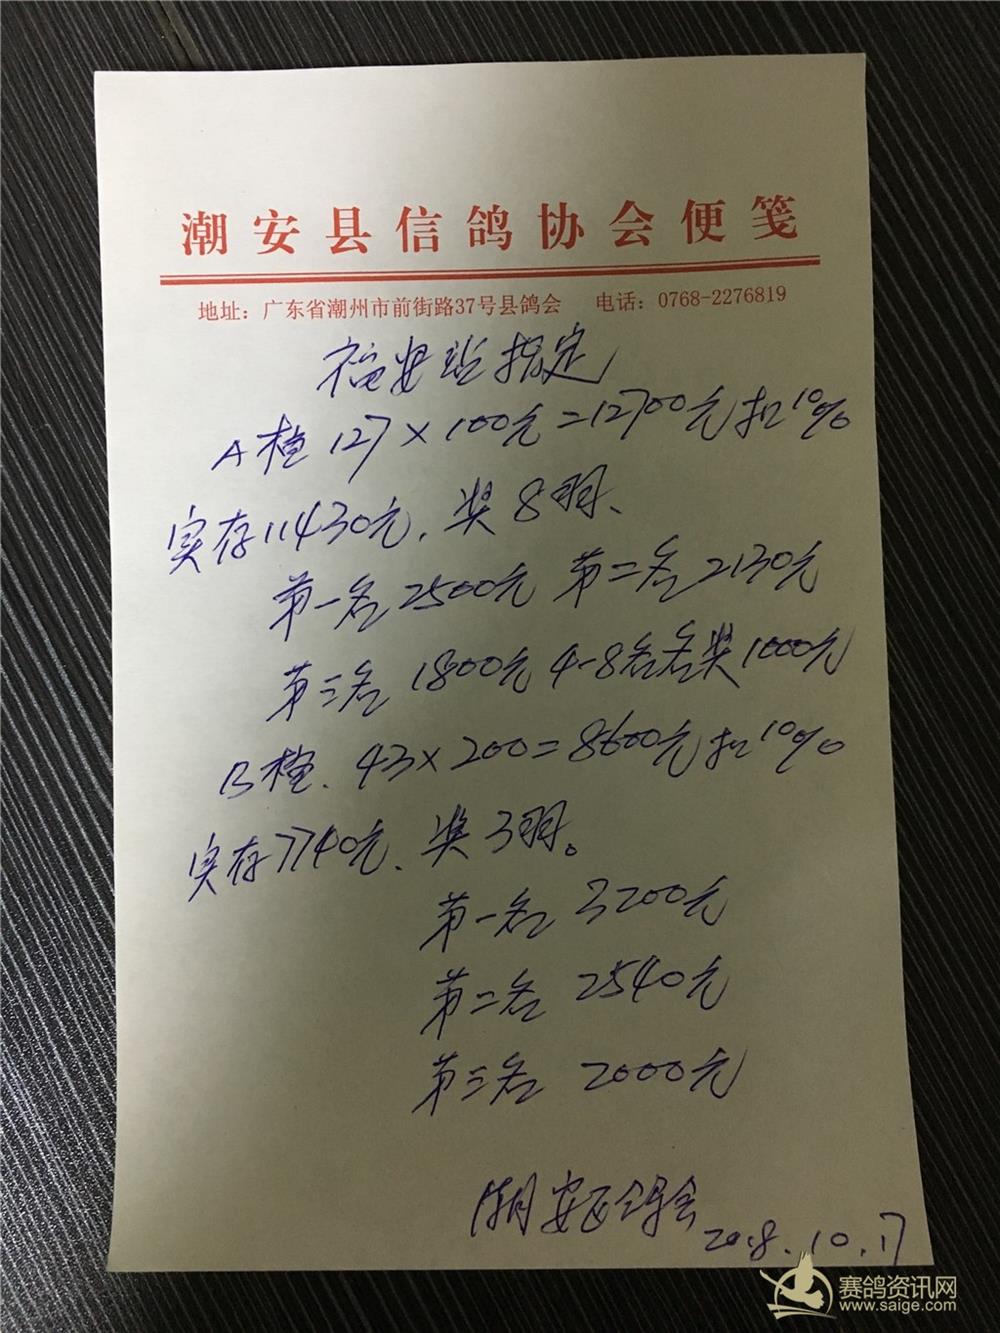 潮安县信鸽协会便笺
地址：广东省潮州市前街路37号县鸽会 电话：0768-2276819
福安站指定
A档 127×100元=12700元扣10%
实存11430元，奖8羽、
第一名2500元 第二名2130元
第三名 1800元 4-8名名奖1000元
B档、43×200=8600元扣10%
实存7740元、奖3羽。
第一名 3200元
第二名 2540元
第三名 2000元
潮安区鸽会
2018.10.17
赛鸽资讯网
www.saige.com